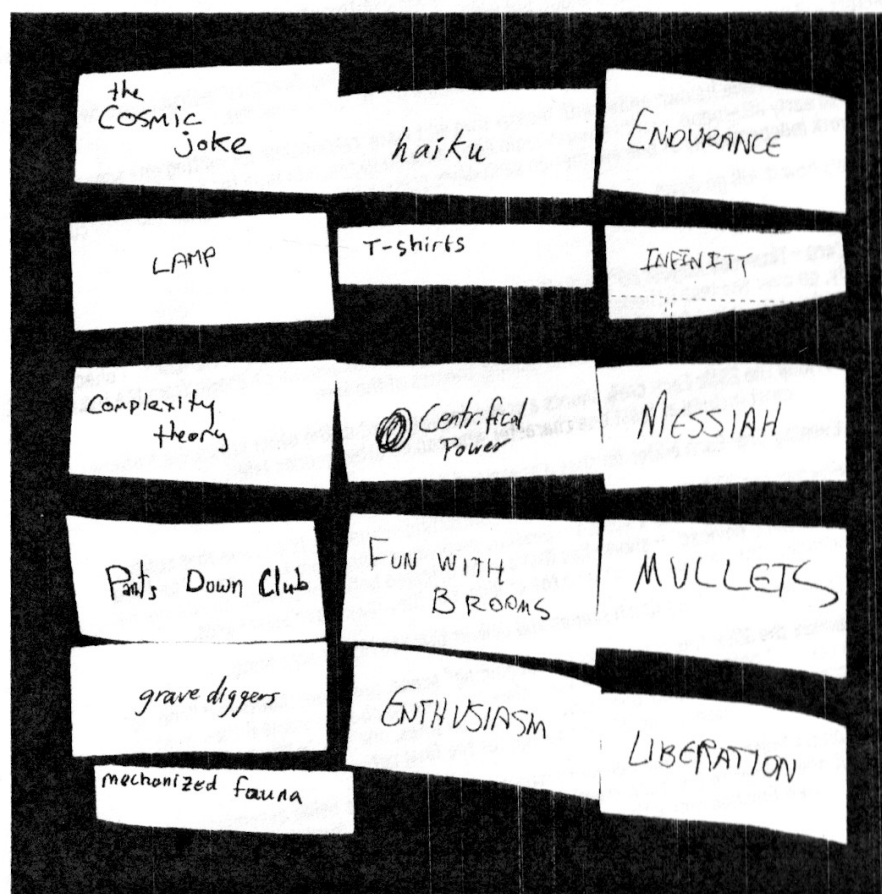 the
Cosmic
joke
haiku
ENDURANCE
LAMP
T-shirts
INFINITY
Complexity
theory
Centrifical
Power
MESSIAH
Pants Down Club
FUN WITH
BROOMS
MULLETS
grave diggers
ENTHUSIASM
LIBERATION
mechanized fauna